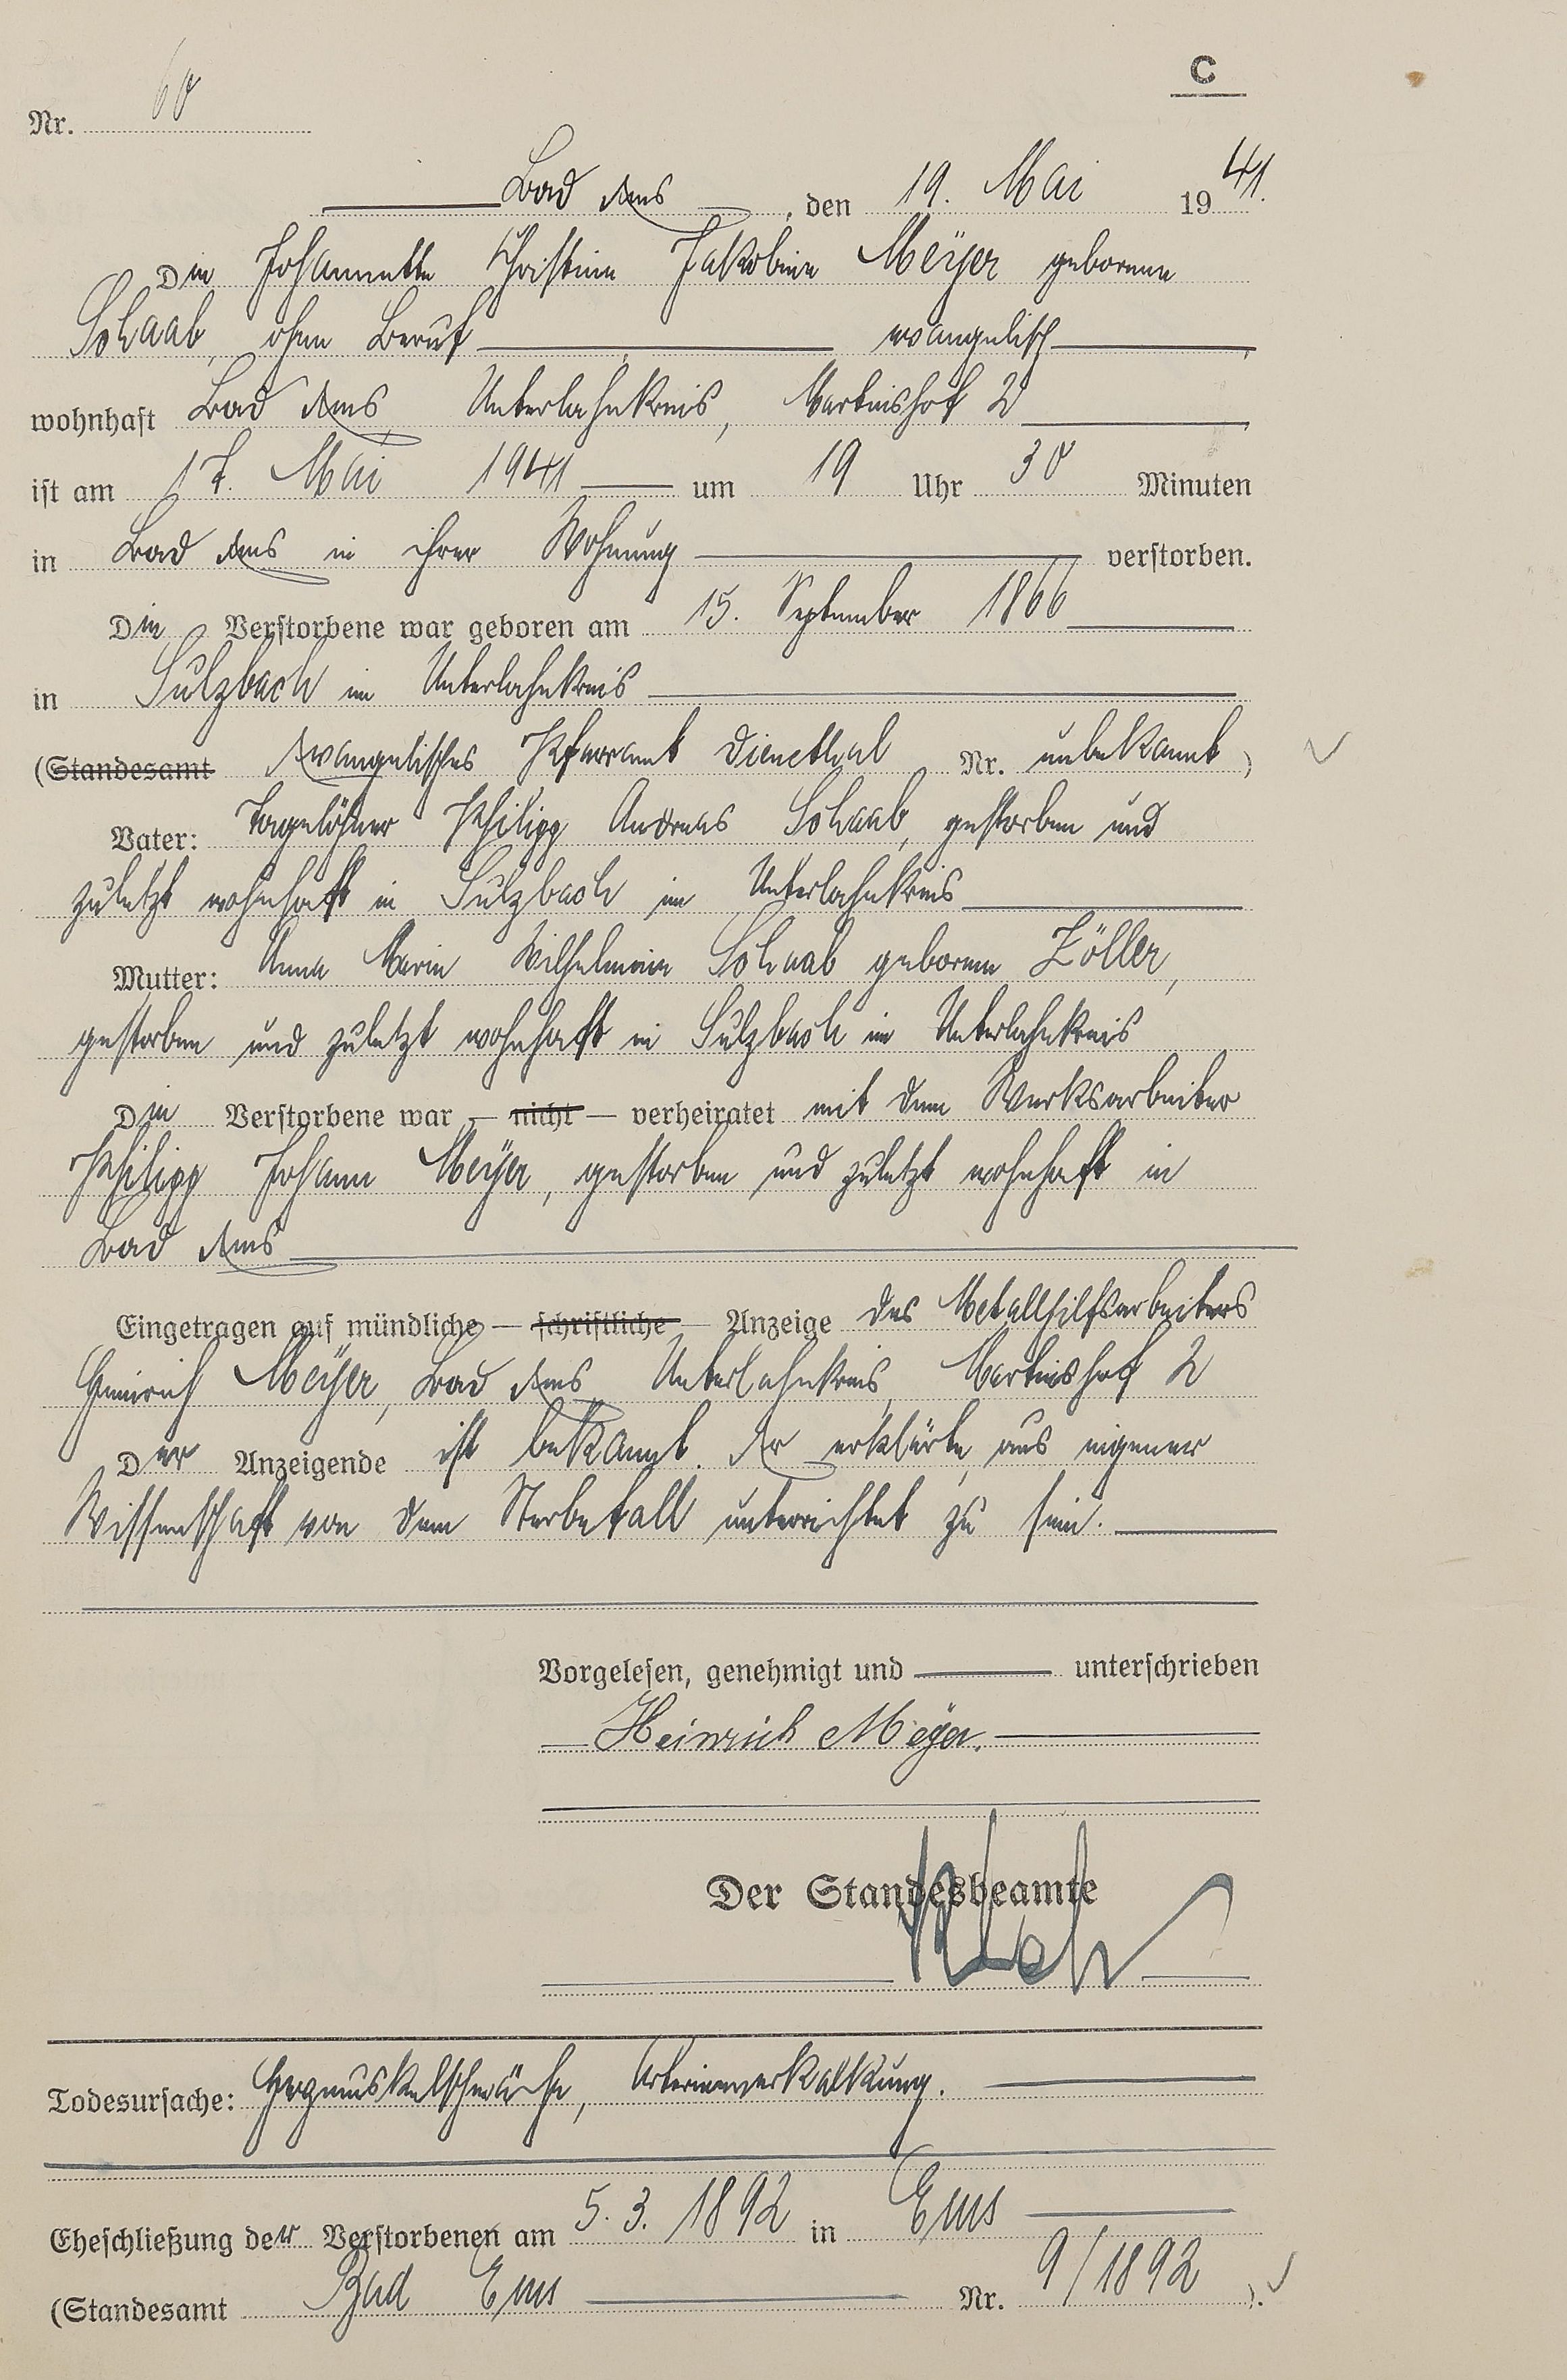 C
Nr. 60
Bad Ems, den 19. Mai 1941.
Die Johannette Christine Jakobine Meÿer geborene
Schaab, ohne Beruf evangelisch,
wohnhaft Bad Ems, Unterlahnkreis, Martinshof 2,
ist am 17. Mai 1941 um 19 Uhr 30 Minuten
in Bad Ems in ihrer Wohnung verstorben.
Die Verstorbene war geboren am 15. September 1866
in Sulzbach im Unterlahnkreis
(Standesamt Evangelisches Pfarramt Dienethal Nr. unbekannt)
Vater: Tagelöhner Philipp Andreas Schaab, gestorben und
zuletzt wohnhaft in Sulzbach im Unterlahnkreis
Mutter: Anna Maria Wilhelmine Schaab geborene Zöller,
gestorben und zuletzt wohnhaft in Sulzbach im Unterlahnkreis
Die Verstorbene war — nicht — verheiratet mit dem Werksarbeiter
Philipp Johann Meÿer, gestorben und zuletzt wohnhaft in
Bad Ems
Eingetragen auf mündliche — schriftliche — Anzeige des Metallhilfsarbeiters
Heinrich Meÿer, Bad Ems, Unterlahnkreis, Martinshof 2
Der Anzeigende ist bekannt. Er erklärte, aus eigener
Wissenschaft von dem Sterbefall unterrichtet zu sein.
Vorgelesen, genehmigt und unterschrieben
Heinrich Meÿer.
Der Standesbeamte
Todesursache: Herzmuskelschwäche, Arterienverkalkung.
Eheschließung der Verstorbenen am 5.3.1892 in Ems
(Standesamt Bad Ems Nr. 9/1892).